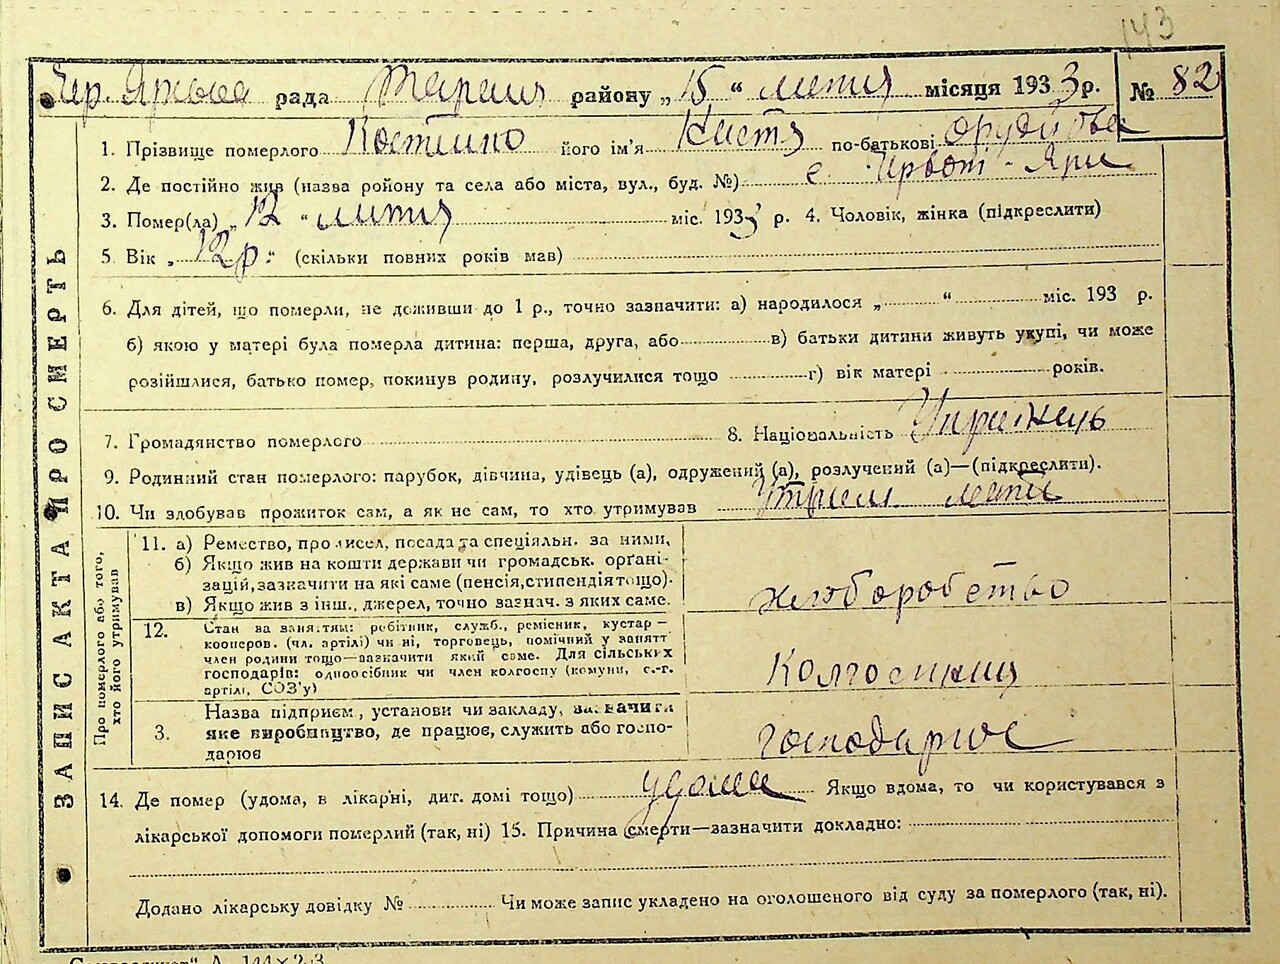 143
рада району „15 “ лютня місяця 1933 р. № 82
1. Прізвище померлого його ім'я по-батькові
2. Де постійно жив (назва ройону та села або міста, вул., буд. №) с.
3. Помер(ла) „12 “ лютня міс. 1933 р. 4. Чоловік, жінка (підкреслити)
5. Вік „ 12 р. “ (скільки повних років мав)
6. Для дітей, що померли, не доживши до 1 р., точно зазначити: а) народилося „ “ міс. 193 р.
б) якою у матері була померла дитина: перша, друга, або в) батьки дитини живуть укупі, чи може
розійшлися, батько помер, покинув родину, розлучилися тощо г) вік матері років.
7. Громадянство померлого 8. Національність
9. Родинний стан померлого: парубок, дівчина, удівець (а), одружений (а), розлучений (а)—(підкреслити).
10. Чи здобував прожиток сам, а як не сам, то хто утримував
ЗАПИС АКТА ПРО СМЕРТЬ
Про померлого або того,
хто його утримував
11. а) Ремество, промисел, посада та спеціяльн. за ними.
б) Якщо жив на кошти держави чи громадськ. орґані-
зацій, зазначити на які саме (пенсія, стипендія тощо).
в) Якщо жив з інш., джерел, точно зазнач. з яких саме.
хлоборобство
12. Стан за заняттям: робітник, служб., ремісник, кустар—
кооперов. (чл. артілі) чи ні, торговець, помічний у занятт
член родини тощо—зазначити який саме. Для сільських
господарів: одноосібник чи член колгоспу (комуни, с.-г.
артілі, СОЗ'у)
3. Назва підприєм, установи чи закладу, зазначити
яке виробництво, де працює, служить або госпо-
дарює
господарює
14. Де помер (удома, в лікарні, дит. домі тощо) удома Якщо вдома, то чи користувався з
лікарської допомоги померлий (так, ні) 15. Причина смерти—зазначити докладно:
Додано лікарську довідку № Чи може запис укладено на оголошеного від суду за померлого (так, ні).